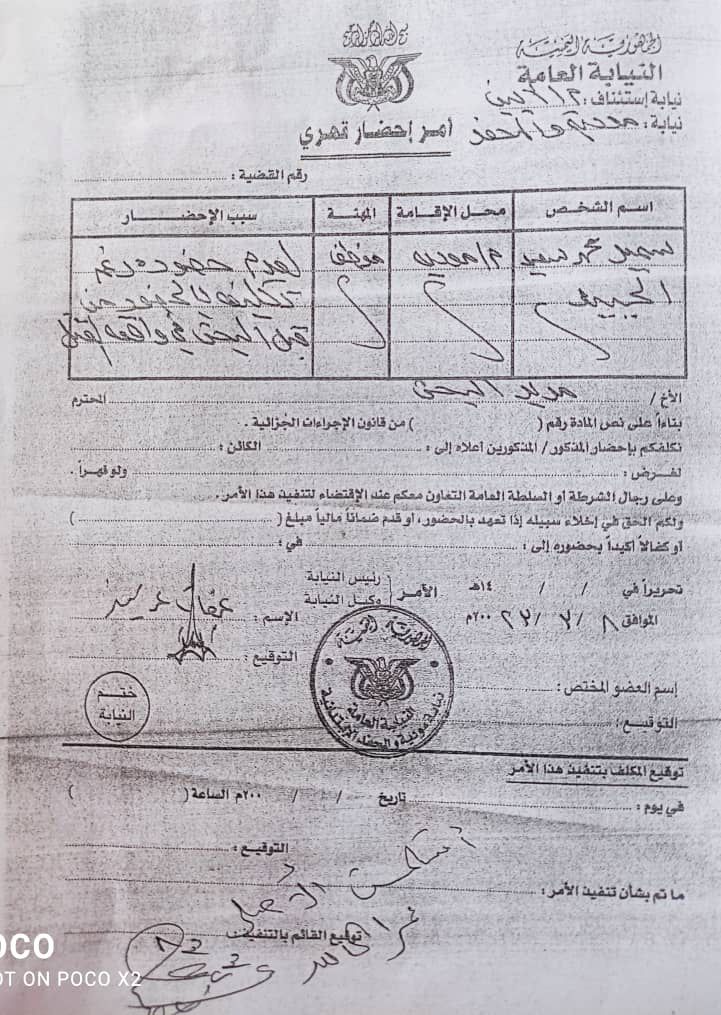 بسم الله الرحمن الرحيم
الجمهورية اليمنية
النيابة العامة
نيابة إستئناف : أبين
نيابة : مودية والمحفد
أمر إحضار قهري
رقم القضية :
اسم الشخص محل الإقامة المهنة سبب الإحضار
سمير محمد م/ موديه موظف لعدم حضوره رغم
تكليفه بالحضور من
قبل البحث في واقعه
الأخ / مدير البحث المحترم
بناءاً على نص المادة رقم ( ) من قانون الإجراءات الجزائية .
نكلفكم بإحضار المذكور / المذكورين أعلاه إلى : الكائن :
لغرض : ولو قهراً .
وعلى رجال الشرطة أو السلطة العامة التعاون معكم عند الإقتضاء لتنفيذ هذا الأمر .
ولكم الحق في إخلاء سبيله إذا تعهد بالحضور ، أو قدم ضماناً مالياً مبلغ ( )
أو كفالاً أكيداً بحضوره إلى : في :
تحريراً في / / ١٤هـ
الموافق ٨ / ٣ / ٢٣ ٢٠٠م
الأمر
رئيس النيابة
وكيل النيابة
الإسم :
التوقيع :
إسم العضو المختص :
التوقيع :
ختم
النيابة
الجمهورية اليمنية
النيابة العامة
نيابة مودية والمحفد الإبتدائية
توقيع المكلف بتنفيذ هذا الأمر
في يوم : تاريخ / / ٢٠٠م الساعة ( )
التوقيع :
ما تم بشأن تنفيذ الأمر :
توقيع القائم بالتنفيذ
POCO
SHOT ON POCO X2